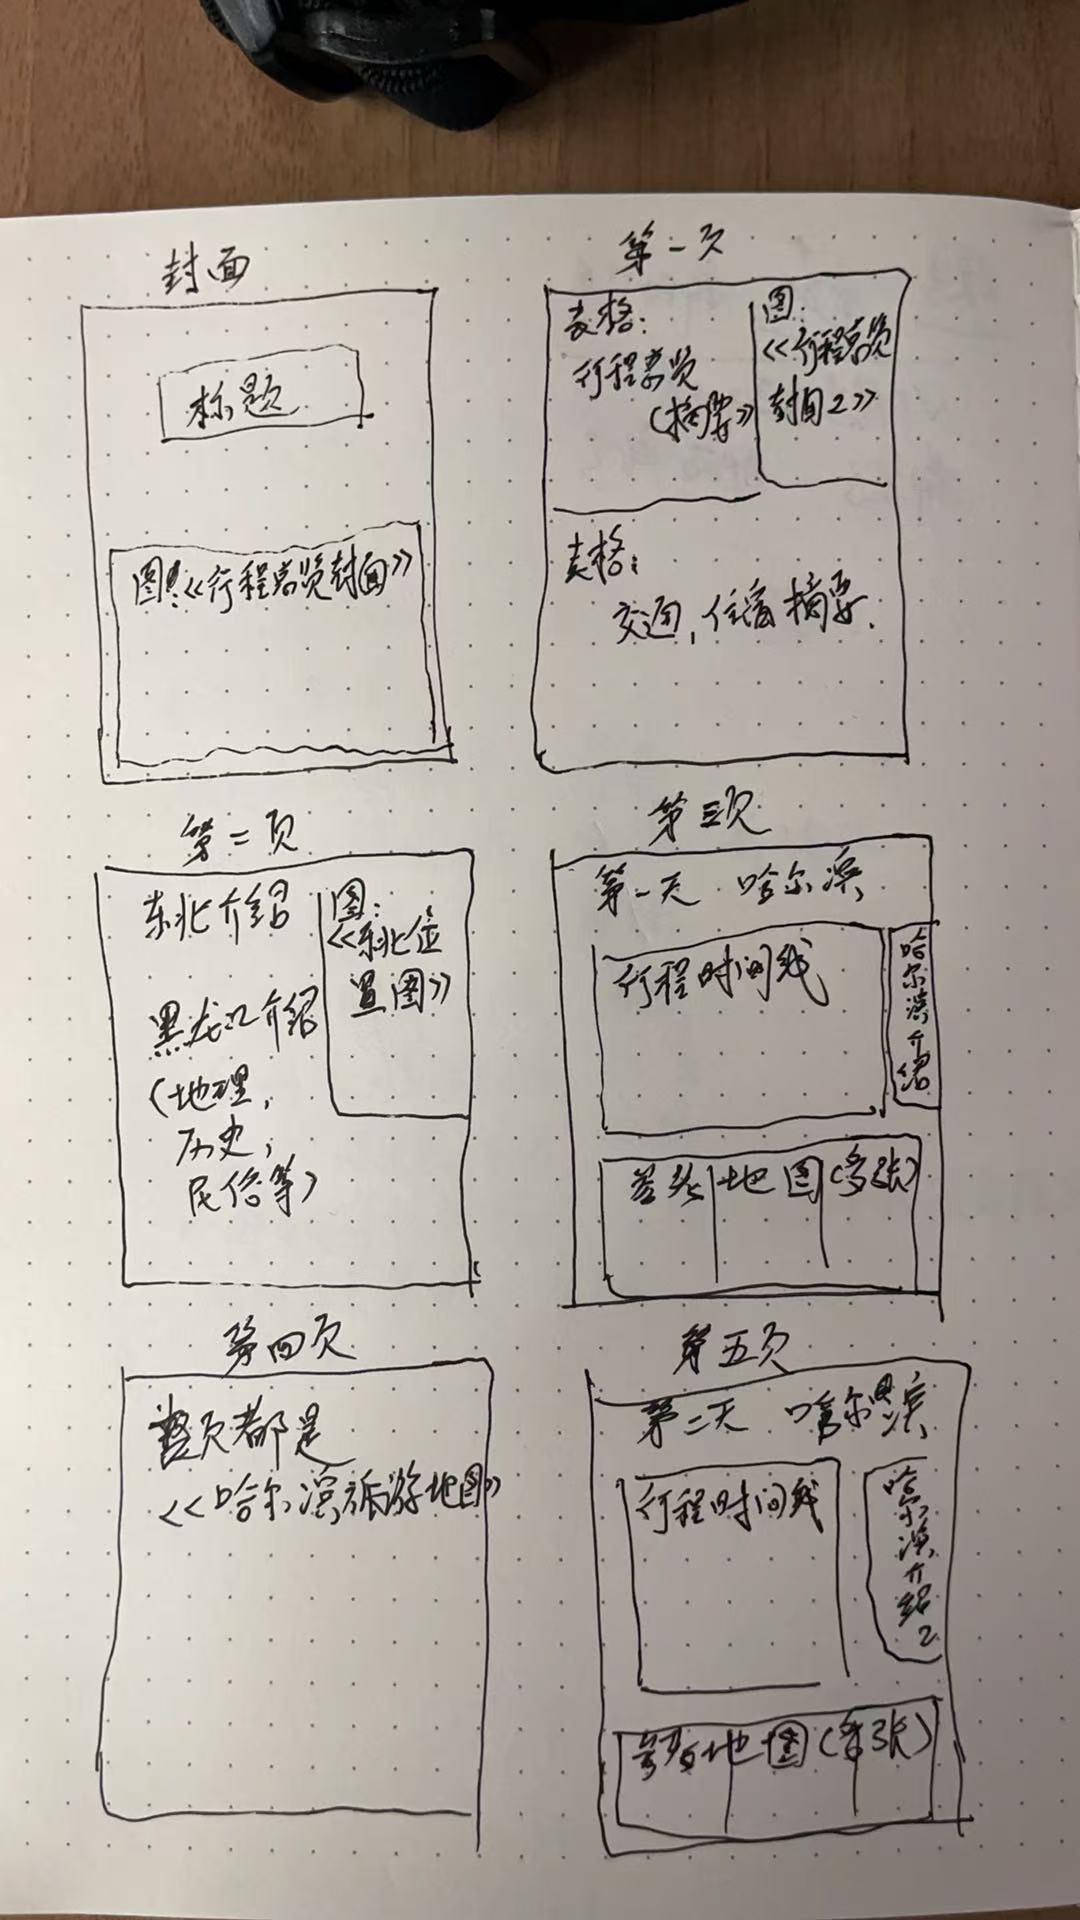 封面
标题
图：《行程总览封面》
第一页
表格：
行程总览
（摘要）
图：
《行程总览
封面2》
表格：
交通，住宿摘要．
第二页
东北介绍
黑龙江介绍
（地理，
历史，
民俗等）
图：
《东北位
置图》
第三页
第一天 哈尔滨
行程时间线
哈尔滨介绍
地图（多张）
第四页
整页都是
《哈尔滨旅游地图》
第五页
第二天 哈尔滨
行程时间线
哈尔滨介绍2
地图（多张）